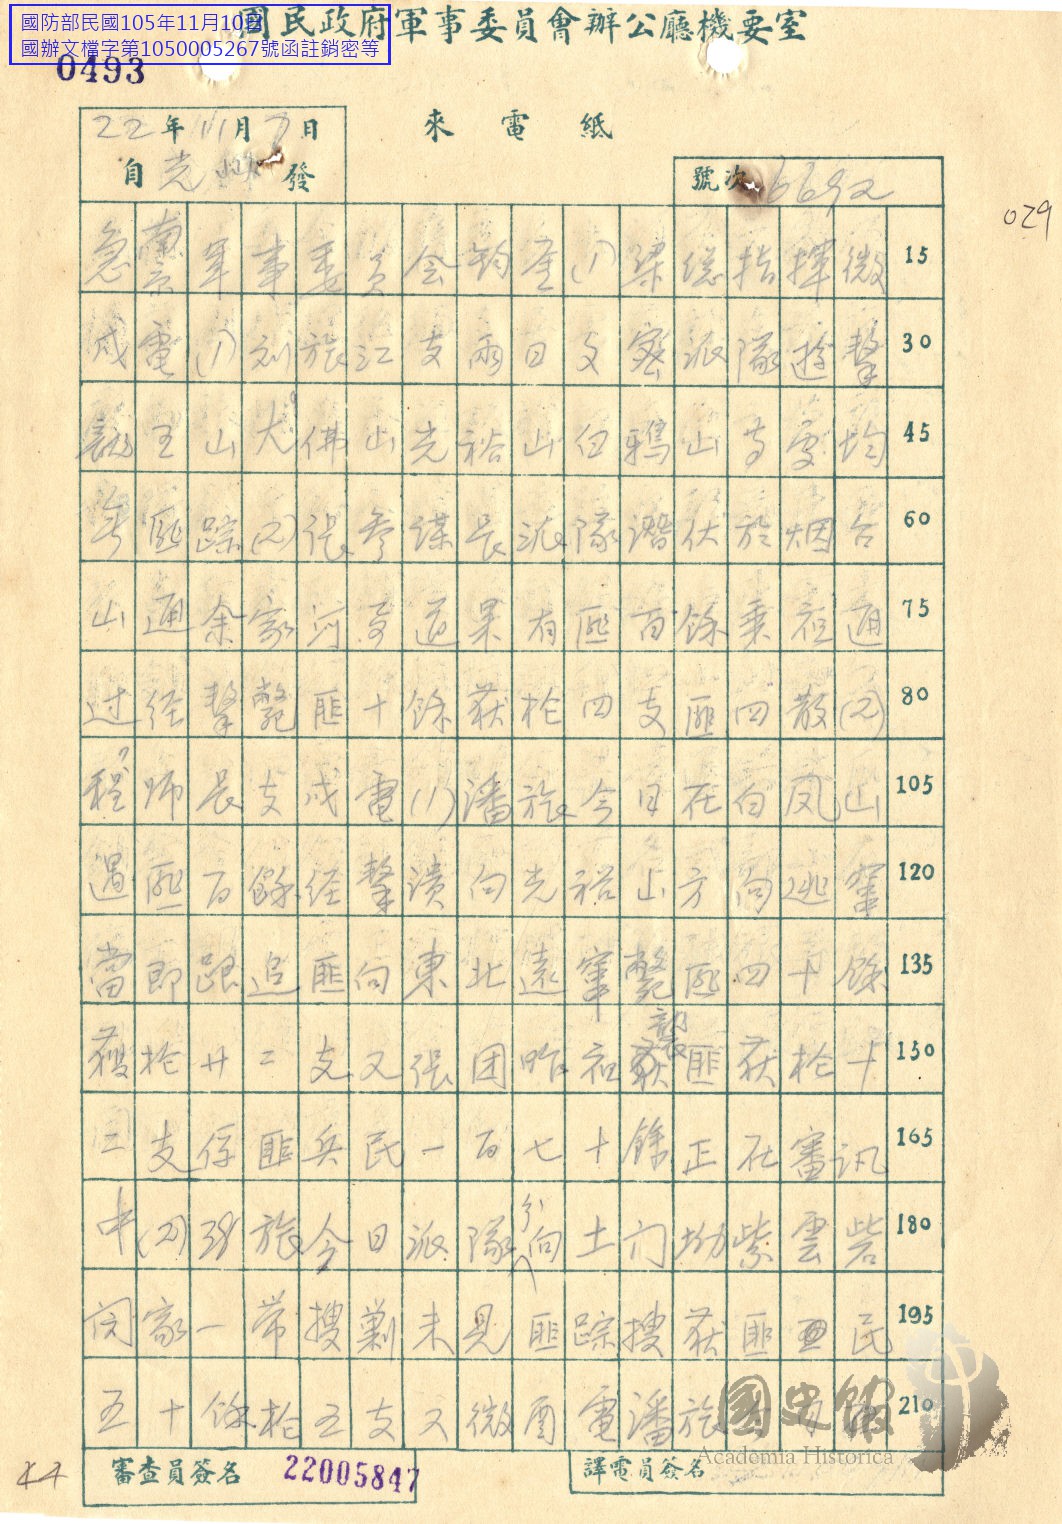 國防部民國105年11月10日
國辦文檔字第1050005267號函註銷密等
國民政府軍事委員會辦公廳機要室
0493
22年11月7日
來電紙
自光山發
號次 6692
029
急南京軍事委員会鈞座(1)梁總指揮微 15
戌電(1)刘旅江支兩日文密派隊遊擊 30
王山大佛山光裕山白鴉山等處均 45
無匪踪(2)張參謀長派隊潛伏於烟台 60
山通余家河要道果有匪百餘乘夜通 75
过経擊斃匪十餘获枪四支匪四散(2) 80
程师長支戌電(1)潘旅今日在白凤山 105
遇匪百餘経擊潰向光裕山方向逃竄 120
當即跟追匪向東北遠竄斃匪四十餘 135
獲枪廿二支又張团昨夜襲匪获枪十 150
二支俘匪兵民一百七十餘正在審讯 165
中(2)刘旅今日派隊分向土门坳紫雲砦 180
闵家一带搜剿未見匪踪搜获匪民 195
五十餘枪五支又微酉電潘旅 210
審查員簽名
22005847
譯電員簽名
國史館
Academia Historica